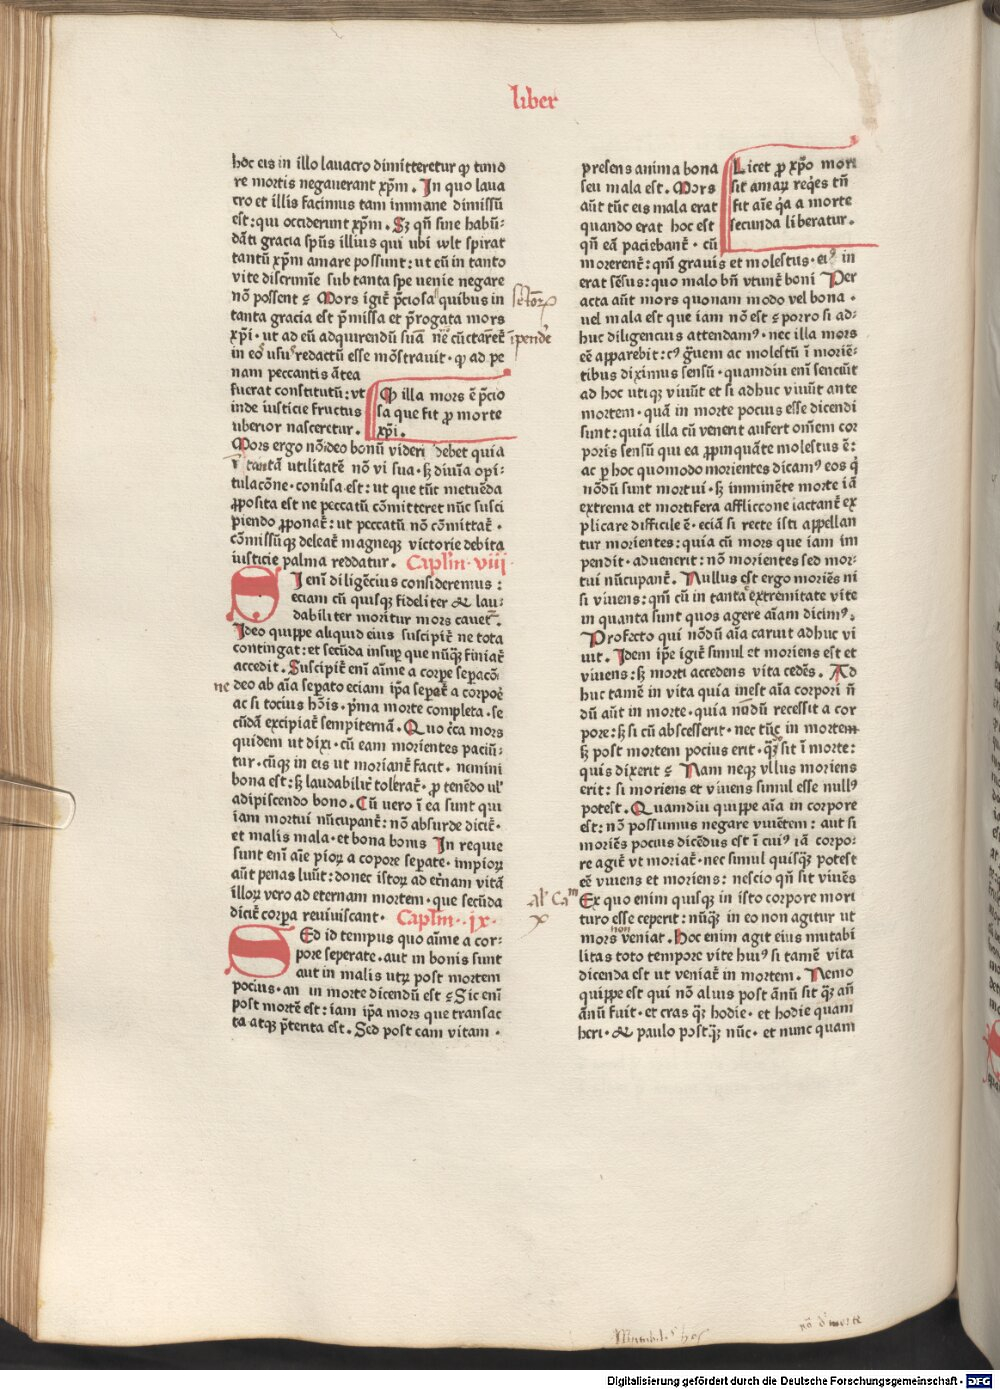 liber
hoc eis in illo lauacro dimitteretur ꝙ timo
re mortis negauerant xp̄m. In quo laua
cro et illis facimus tam immane dimissū
est: qui occiderunt xp̄m. Sꝫ qn̄ sine habū-
dāti gracia spūs illius qui ubi vult spirat
tantū xp̄m amare possunt: ut eū in tanto
vite discrimīe sub tanta spe uenie negare
nō possent? Mors igit̄ p̄ciosa quibus in
tanta gracia est p̄missa et p̄rogata mors
xp̄i. ut ad eū adquirendū suā nec cūctarēt̄
in eoꝰ usuꝰ redactū esse mōstrauit. ꝙ ad pe
nam peccantis ātea
fuerat constitutū: ut
inde iusticie fructus
uberior nasceretur.
ꝙ illa mors ē p̄cio
sa que fit ꝓ morte
xp̄i.
Mors ergo nō ideo bonū videri debet quia
ī tantā utilitatē nō vi sua. sꝫ diuīa opi-
tulacōne. conūsa est: ut que tūc metuēda
ꝓposita est ne peccatū cōmitteret nūc susci
piendo ꝓponat̄: ut peccatū nō cōmittat̄.
cōmissūqꝫ deleat̄ magneqꝫ victorie debita
iusticie palma reddatur. Caplm̄. viii.
SI enī diligēcius consideremus:
eciam cū quisqꝫ fideliter et lau-
dabiliter moritur mors cauet̄.
Ideo quippe aliquid eius suscipit̄ ne tota
contingat: et secūda insuꝑ que nūqꝫ finiat̄
accedit. Suscipit̄ enī aīme a corꝑe seꝑacō
ne
deo ab aīa seꝑato eciam ip̄a seꝑet̄ a corpoē
ac si tocius hōis. p̄ma morte completa. se
cūdā excipiat̄ sempiternā. Quo c̄ca mors
quidem ut dixi. cū eam morientes paciū-
tur. cūqꝫ in eis ut moriant̄ facit. nemini
bona est: sꝫ laudabilit̄ tolerat̄. ꝓ tenēdo ul
adipiscendo bono. Cū uero ī ea sunt qui
iam mortui nūcupant̄: nō absurde dicit̄.
et malis mala. et bona bonis In requie
sunt enī aīe pioꝝ a corpore seꝑate. impioꝝ
aūt penas luūt: donec istoꝝ ad et̄nam vitā
illoꝝ vero ad eternam mortem. que secūda
dicit̄ corꝑa reuiuiscant. Caplm̄. ix.
SEd id tempus quo aīme a cor-
pore seperate. aut in bonis sunt
aut in malis utꝝ post mortem
pocius. an in morte dicendū est? Sic enī
post mortē est: iam ip̄a mors que transac
ta atqꝫ p̄terita est. Sed post eam vitam.
presens anima bona
seu mala est. Mors
aūt tūc eis mala erat
quando erat hoc est
qn̄ eā paciebant̄. cū
Licet ꝓ xp̄o mori
sit amaꝝ reqͥes tn̄
fit aīe qͥa a morte
secunda liberatur.
morerent̄: qm̄ grauis et molestus. eiꝰ in
erat sēsus: quo malo bn̄ vtunt̄ boni Per
acta aūt mors quonam modo vel bona.
uel mala est que iam nō est? porro si ad-
huc diligencius attendamꝰ. nec illa mors
eē apparebit: cꝰ g̊uem ac molestū ī moriē-
tibus diximus sensū. quamdiu enī senciūt
ad hoc utiqꝫ viuūt et si adhuc viuūt ante
mortem. quā in morte pocius esse dicendi
sunt: quia illa cū venerit aufert om̄em cor
poris sensū qui ea ꝓpinquāte molestus ē:
ac ꝑ hoc quomodo morientes dicamꝰ eos qͥ
nōdū sunt mortui. sꝫ imminēte morte iā
extrema et mortifera affliccone iactant̄ ex
plicare difficile ē. eciā si recte isti appellan
tur morientes: quia cū mors que iam im
pendit. aduenerit: nō morientes sed mor-
tui nūcupant̄. Nullus est ergo moriēs ni
si viuens: qm̄ cū in tanta extremitate vite
in quanta sunt quos agere aīam dicimꝰ.
Profecto qui nōdū aīa caruit adhuc vi
uit. Idem ip̄e igit̄ simul et moriens est et
viuens: sꝫ morti accedens vita cedēs. Ad
huc tamē in vita quia inest aīa corpori n̄
dū aūt in morte. quia nōdū recessit a cor
pore: sꝫ si cū abscesserit. nec tūc in mortem
sꝫ post mortem pocius erit. qꝫ sit ī morte:
quis dixerit? Nam neqꝫ vllus moriens
erit: si moriens et viuens simul esse nullꝰ
potest. Quamdiu quippe aīa in corpore
est: nō possumus negare viuētem: aut si
moriēs pocius dicēdus est ī cuiꝰ iā corpo-
re agit̄ vt moriat̄. nec simul quisqꝫ potest
eē viuens et moriens: nescio qn̄ sit viuēs
Ex quo enim quisqꝫ in isto corpore mori
turo esse ceperit: nūqꝫ in eo non agitur ut
non
mors veniat. Hoc enim agit eius mutabi
litas toto tempore vite huiꝰ si tamē vita
dicenda est ut veniat̄ in mortem. Nemo
quippe est qui nō alius post ānū sit qꝫ an̄
ānū fuit. et cras qꝫ hodie. et hodie quam
heri. et paulo post qꝫ nūc. et nunc quam
Digitalisierung gefördert durch die Deutsche Forschungsgemeinschaft - DFG